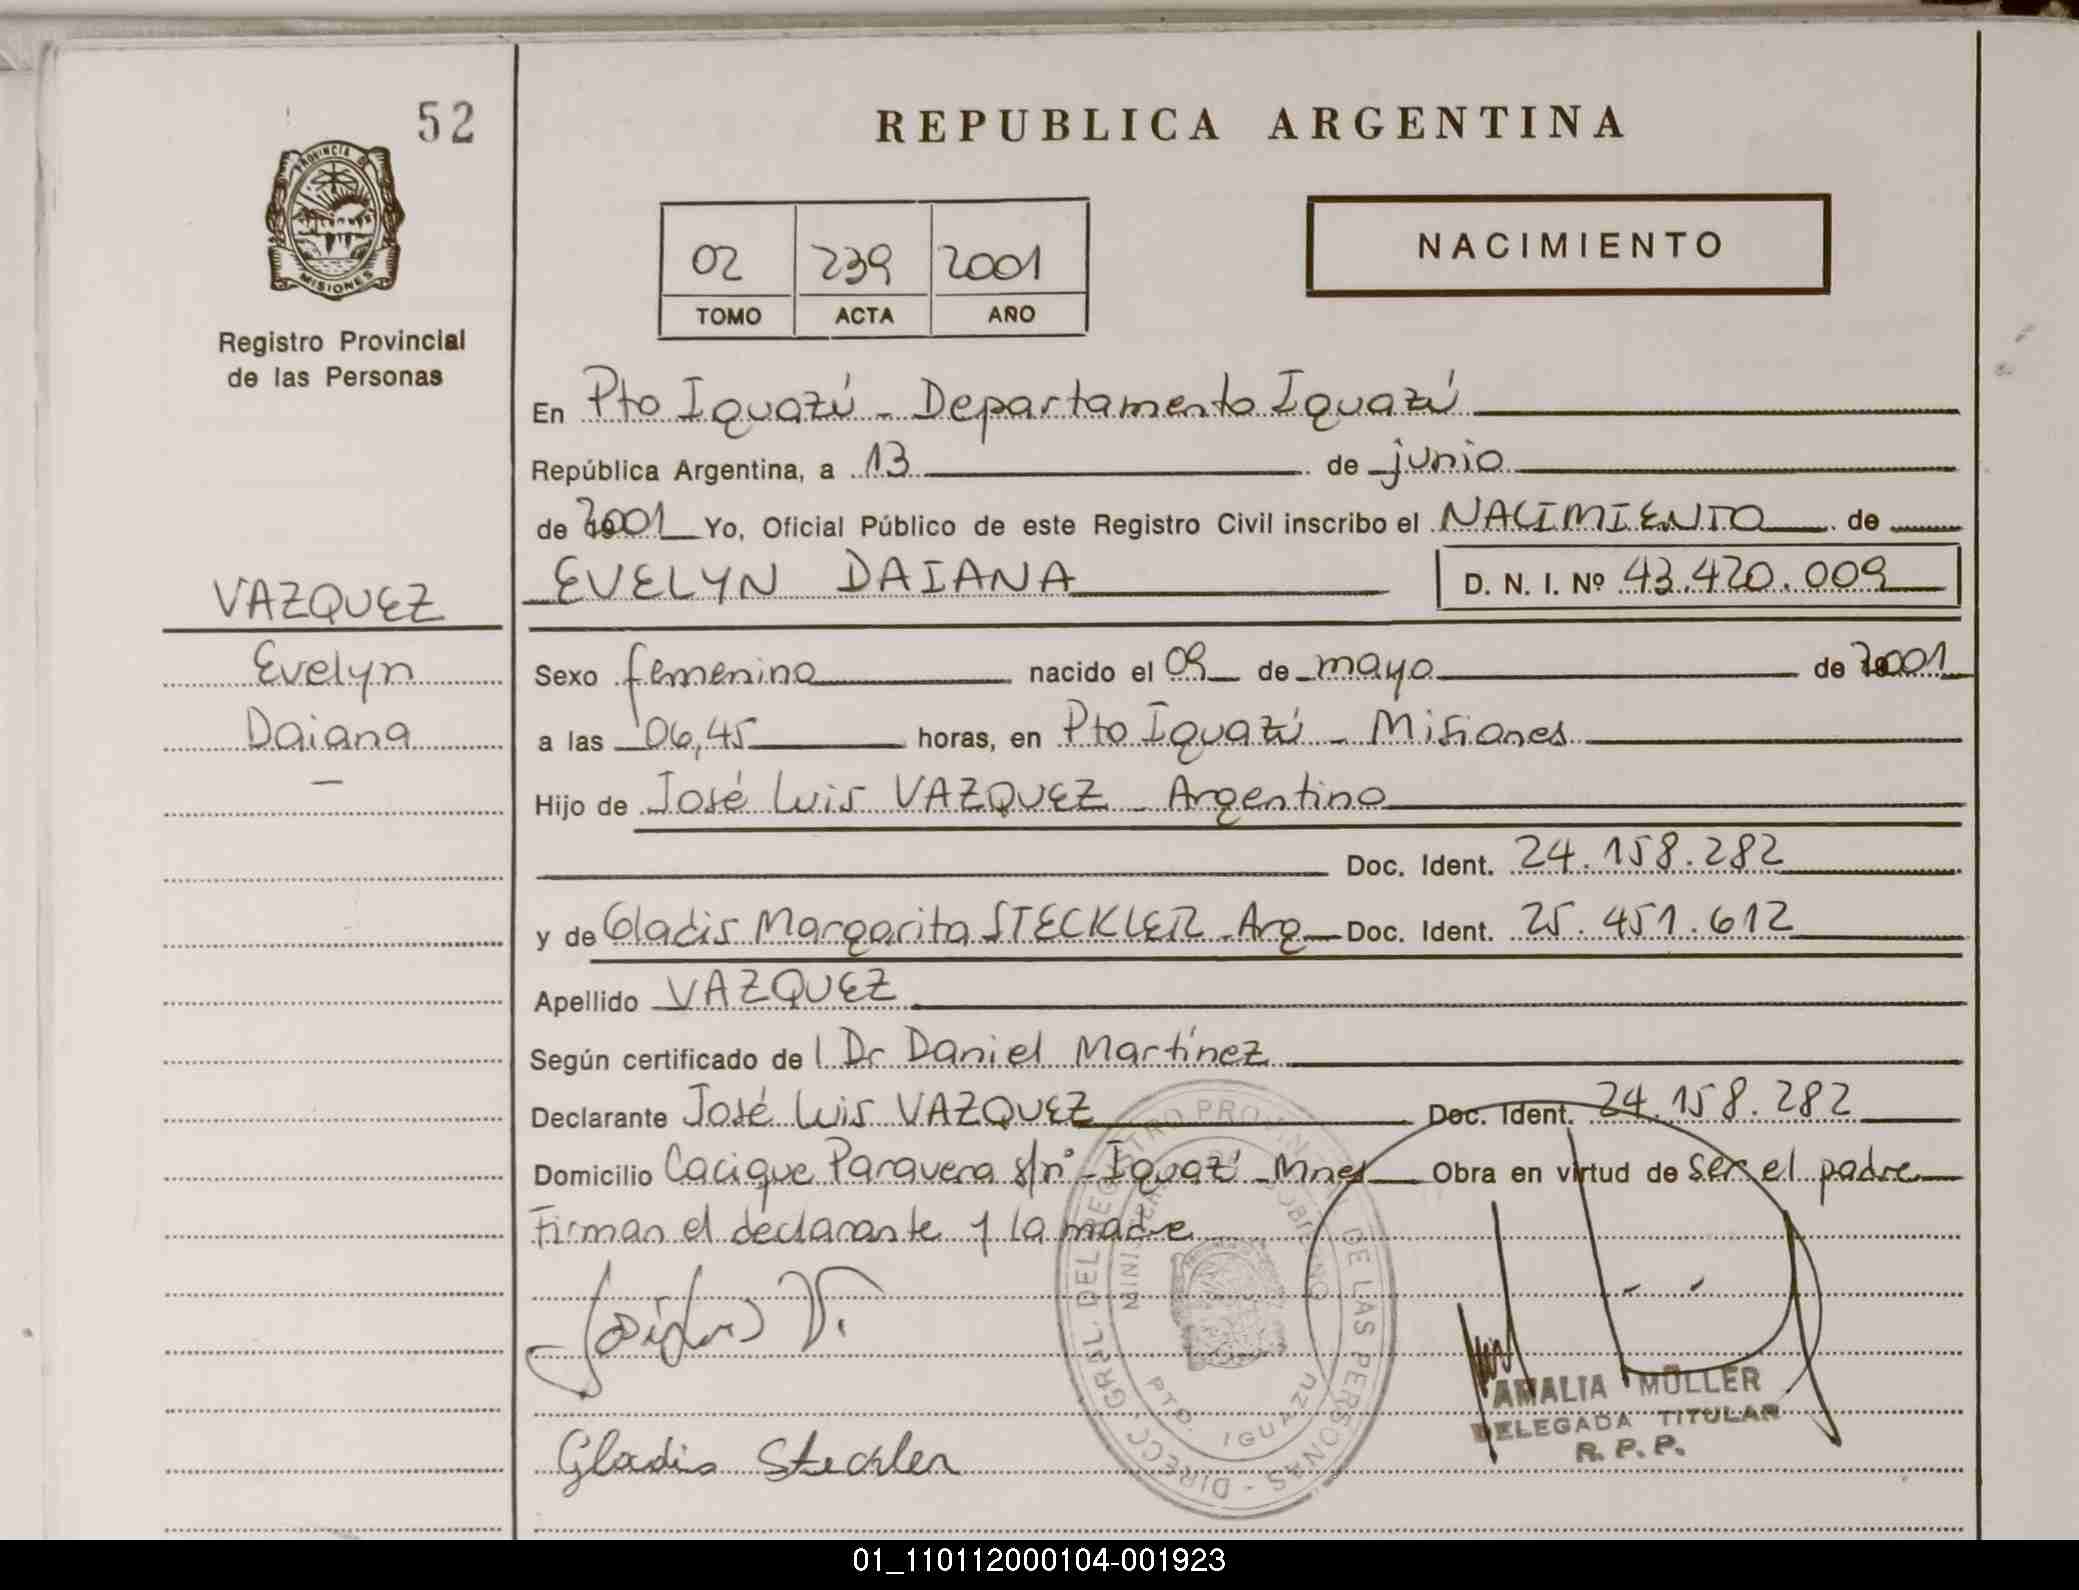 52
REPUBLICA ARGENTINA
PROVINCIA DE
MISIONES
Registro Provincial
de las Personas
02 239 2001
TOMO ACTA AÑO
NACIMIENTO
En Pto Iguazú - Departamento Iguazú
República Argentina, a 13 de junio
de 2001 Yo, Oficial Público de este Registro Civil inscribo el NACIMIENTO de
EVELYN DAIANA D. N. I. Nº 43.420.009
VAZQUEZ
Evelyn
Daiana
Sexo femenino nacido el 09 de mayo de 2001
a las 06,45 horas, en Pto Iguazú - Misiones
Hijo de José Luis VAZQUEZ - Argentino
Doc. Ident. 24.158.282
y de Gladis Margarita STECKLER - Arg Doc. Ident. 25.451.612
Apellido VAZQUEZ
Según certificado de l Dr Daniel Martínez
Declarante José Luis VAZQUEZ Doc. Ident. 24.158.282
Domicilio Cacique Paravera s/nº - Iguazú - Mnes Obra en virtud de ser el padre
Firman el declarante y la madre
DIRECC. GRAL. DEL REGISTRO PROVINCIAL DE LAS PERSONAS -
PTO. IGUAZU
AMALIA MÜLLER
DELEGADA TITULAR
R. P. P.
Gladis Steckler
01_110112000104-001923